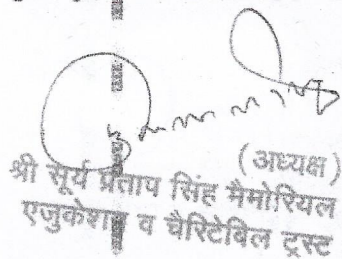 (अध्यक्ष)
श्री सूर्य प्रताप सिंह मैमोरियल
एजुकेशन व चैरिटेबिल ट्रस्ट